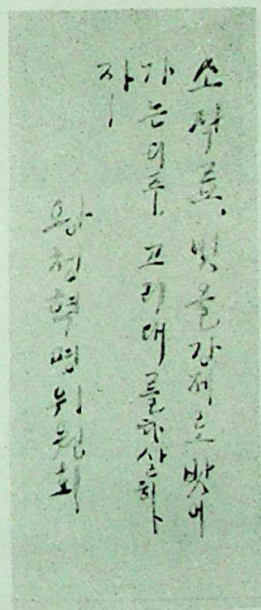 소작료, 빚을강제로받어
가는디주 고리대를타산하
자!
왕청혁명위원회